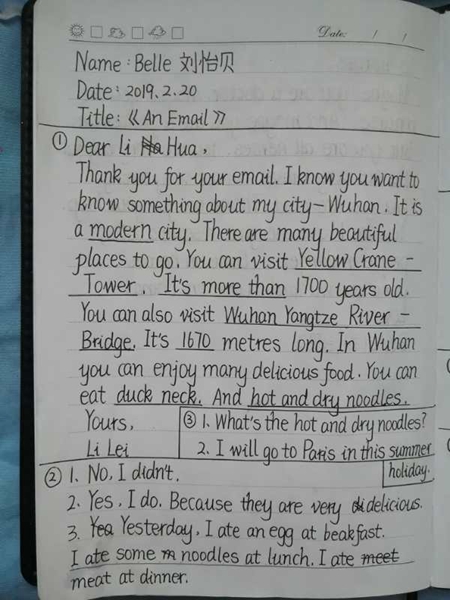 Date: / /
Name: Belle 刘怡贝
Date: 2019.2.20
Title:《An Email》
① Dear Li Hua,
Thank you for your email. I know you want to
know something about my city - Wuhan. It is
a modern city. There are many beautiful
places to go. You can visit Yellow Crane -
Tower. It's more than 1700 years old.
You can also visit Wuhan Yangtze River -
Bridge. It's 1670 metres long. In Wuhan
you can enjoy many delicious food. You can
eat duck neck. And hot and dry noodles.
Yours,
Li Lei
③ 1. What's the hot and dry noodles?
2. I will go to Paris in this summer
holiday.
② 1. No, I didn't.
2. Yes, I do. Because they are very delicious.
3. Yesterday, I ate an egg at beakfast.
I ate some noodles at lunch. I ate
meat at dinner.